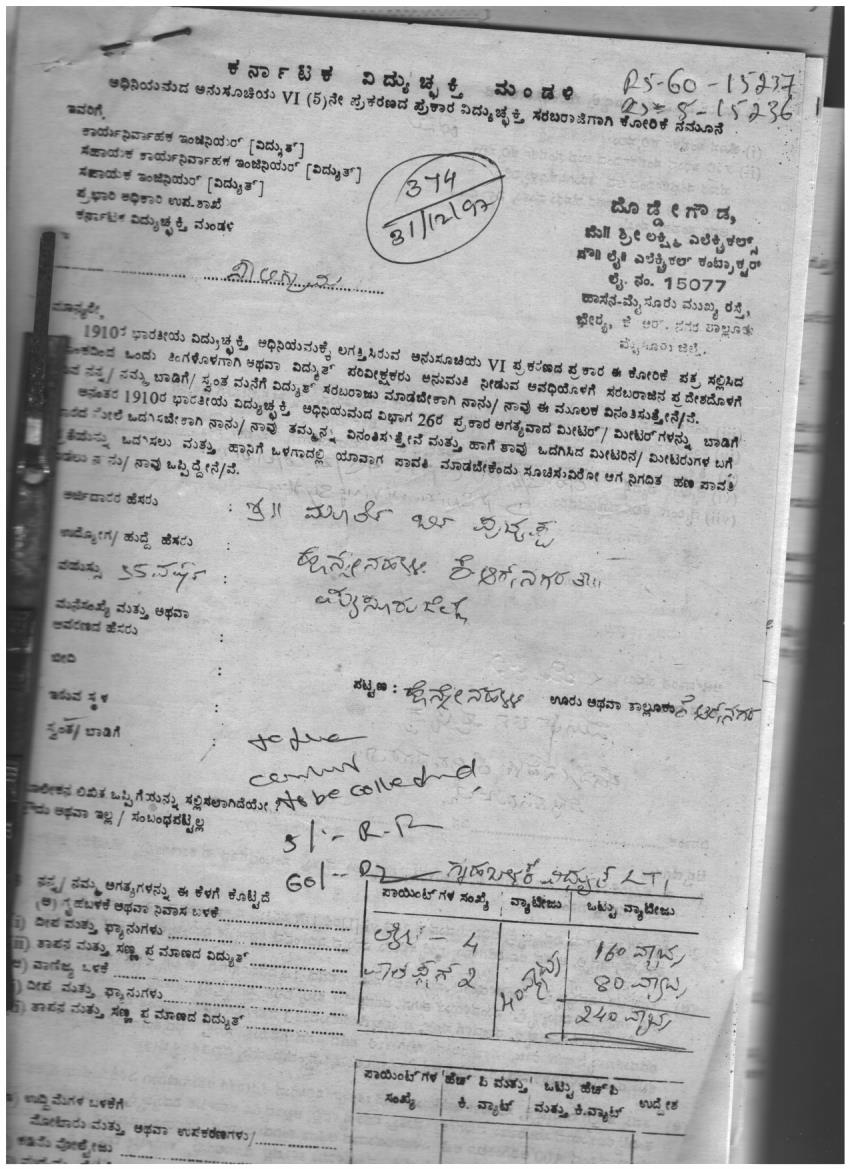 ಕರ್ನಾಟಕ ವಿದ್ಯುಚ್ಛಕ್ತಿ ಮಂಡಳಿ
RS-60-15237
RS-5-15236
ಅಧಿನಿಯಮದ ಅನುಸೂಚಿಯ VI (5)ನೇ ಪ್ರಕರಣದ ಪ್ರಕಾರ ವಿದ್ಯುಚ್ಛಕ್ತಿ ಸರಬರಾಜಿಗಾಗಿ ಕೋರಿಕೆ ನಮೂನೆ
ಇವರಿಗೆ,
ಕಾರ್ಯನಿರ್ವಾಹಕ ಇಂಜಿನಿಯರ್ [ವಿದ್ಯುತ್]
ಸಹಾಯಕ ಕಾರ್ಯನಿರ್ವಾಹಕ ಇಂಜಿನಿಯರ್ [ವಿದ್ಯುತ್]
ಸಹಾಯಕ ಇಂಜಿನಿಯರ್ [ವಿದ್ಯುತ್]
ಪ್ರಭಾರಿ ಅಧಿಕಾರಿ ಉಪ.ಶಾಖೆ
ಕರ್ನಾಟಕ ವಿದ್ಯುಚ್ಛಕ್ತಿ ಮಂಡಳಿ
374
31/12/97
ದೊಡ್ಡೇಗೌಡ,
ಮೆ॥ ಶ್ರೀ ಲಕ್ಷ್ಮಿ ಎಲೆಕ್ಟ್ರಿಕಲ್ಸ್
ಎಲೆಕ್ಟ್ರಿಕಲ್ ಕಂಟ್ರಾಕ್ಟರ್
ಲೈ. ನಂ. 15077
ಹಾಸನ-ಮೈಸೂರು ಮುಖ್ಯ ರಸ್ತೆ,
ಭೇರ್ಯ, ಕೆ ಆರ್. ನಗರ ತಾಲ್ಲೂಕು
ಮೈಸೂರು ಜಿಲ್ಲೆ.
ಮಾನ್ಯರೇ,
1910ರ ಭಾರತೀಯ ವಿದ್ಯುಚ್ಛಕ್ತಿ ಅಧಿನಿಯಮಕ್ಕೆ ಲಗತ್ತಿಸಿರುವ ಅನುಸೂಚಿಯ VI ಪ್ರಕರಣದ ಪ್ರಕಾರ ಈ ಕೋರಿಕೆ ಪತ್ರ ಸಲ್ಲಿಸಿದ
ಒಂದು ತಿಂಗಳೊಳಗಾಗಿ ಅಥವಾ ವಿದ್ಯುತ್ ಪರಿವೀಕ್ಷಕರು ಅನುಮತಿ ನೀಡುವ ಅವಧಿಯೊಳಗೆ ಸರಬರಾಜಿನ ಪ್ರದೇಶದೊಳಗೆ
ನನ್ನ/ ನಮ್ಮ ಬಾಡಿಗೆ/ ಸ್ವಂತ ಮನೆಗೆ ವಿದ್ಯುತ್ ಸರಬರಾಜು ಮಾಡಬೇಕಾಗಿ ನಾನು/ ನಾವು ಈ ಮೂಲಕ ವಿನಂತಿಸುತ್ತೇನೆ/ವೆ.
ಅನಂತರ 1910ರ ಭಾರತೀಯ ವಿದ್ಯುಚ್ಛಕ್ತಿ ಅಧಿನಿಯಮದ ವಿಭಾಗ 26ರ ಪ್ರಕಾರ ಅಗತ್ಯವಾದ ಮೀಟರ್/ ಮೀಟರ್‌ಗಳನ್ನು ಬಾಡಿಗೆ
ಮೇಲೆ ಒದಗಿಸಬೇಕಾಗಿ ನಾನು/ ನಾವು ತಮ್ಮನ್ನು ವಿನಂತಿಸುತ್ತೇನೆ ಮತ್ತು ಹಾಗೆ ತಾವು ಒದಗಿಸಿದ ಮೀಟರಿನ/ ಮೀಟರುಗಳ ಬಗೆ
ಒದಗಿಸಲು ಮತ್ತು ಹಾನಿಗೆ ಒಳಗಾದಲ್ಲಿ ಯಾವಾಗ ಪಾವತಿ ಮಾಡಬೇಕೆಂದು ಸೂಚಿಸುವಿರೋ ಆಗ ನಿಗದಿತ ಹಣ ಪಾವತಿ
ನಾನು/ ನಾವು ಒಪ್ಪಿದ್ದೇನೆ/ವೆ.
ಅರ್ಜಿದಾರರ ಹೆಸರು :
ಉದ್ಯೋಗ/ ಹುದ್ದೆ ಹೆಸರು :
ವಯಸ್ಸು 35 ವರ್ಷ : ಕೆ ಆರ್ ನಗರ ತಾ॥
ಮೈಸೂರು ಜಿಲ್ಲೆ
ಮನೆಸಂಖ್ಯೆ ಮತ್ತು ಅಥವಾ
ಆವರಣದ ಹೆಸರು :
ಬೀದಿ :
ಪಟ್ಟಣ : ಊರು ಅಥವಾ ತಾಲ್ಲೂಕು ಕೆ ಆರ್ ನಗರ
ಇರುವ ಸ್ಥಳ :
ಸ್ವಂತ/ ಬಾಡಿಗೆ :
to be collected
ಮಾಲೀಕನ ಲಿಖಿತ ಒಪ್ಪಿಗೆಯನ್ನು ಸಲ್ಲಿಸಲಾಗಿದೆಯೇ ?
ಹೌದು ಅಥವಾ ಇಲ್ಲ / ಸಂಬಂಧಪಟ್ಟಿಲ್ಲ
5/-
60/- ಗೃಹಬಳಕೆ ವಿದ್ಯುತ್ LT1
ನನ್ನ/ ನಮ್ಮ ಅಗತ್ಯಗಳನ್ನು ಈ ಕೆಳಗೆ ಕೊಟ್ಟಿದೆ
(ಅ) ಗೃಹಬಳಕೆ ಅಥವಾ ನಿವಾಸ ಬಳಕೆ
i) ದೀಪ ಮತ್ತು ಫ್ಯಾನುಗಳು
ii) ತಾಪನ ಮತ್ತು ಸಣ್ಣ ಪ್ರಮಾಣದ ವಿದ್ಯುತ್
ವಾಣಿಜ್ಯ ಬಳಕೆ
ದೀಪ ಮತ್ತು ಫ್ಯಾನುಗಳು
ತಾಪನ ಮತ್ತು ಸಣ್ಣ ಪ್ರಮಾಣದ ವಿದ್ಯುತ್
ಪಾಯಿಂಟ್‌ಗಳ ಸಂಖ್ಯೆ ವ್ಯಾಟೇಜು ಒಟ್ಟು ವ್ಯಾಟೇಜು
ಲೈಟ್ - 4 160 ವ್ಯಾಟ್ಸ್
2 40 ವ್ಯಾಟ್ಸ್ 80 ವ್ಯಾಟ್ಸ್
240 ವ್ಯಾಟ್ಸ್
ಪಾಯಿಂಟ್‌ಗಳ ಸಂಖ್ಯೆ ಹೆಚ್ ಪಿ ಮತ್ತು ಕಿ. ವ್ಯಾಟ್ ಒಟ್ಟು ಹೆಚ್ ಪಿ ಮತ್ತು ಕಿ.ವ್ಯಾಟ್ ಉದ್ದೇಶ
ಉದ್ದಿಮೆಗಳ ಬಳಕೆಗೆ
ಮೋಟಾರು ಮತ್ತು ಅಥವಾ ಉಪಕರಣಗಳು/
ಕಡಿಮೆ ವೋಲ್ಟೇಜು